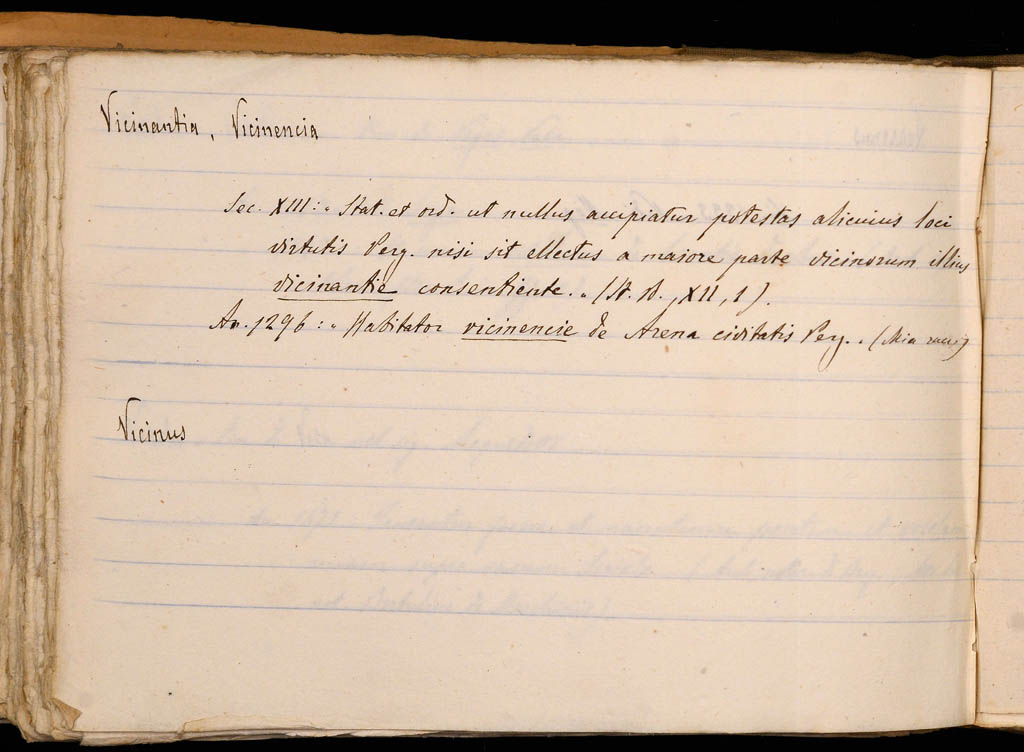 Vicinantia, Vicinencia
Sec. XIII: „ Stat. et ord. ut nullus accipiatur potestas alicuius loci
virtutis Perg. nisi sit ellectus a maiore parte vicinorum illius
vicinantie consentiente. „ (St. B., XII, 1).
An. 1296: „ Habitator vicinencie de Arena civitatis Perg. „ (Mia
Vicinus